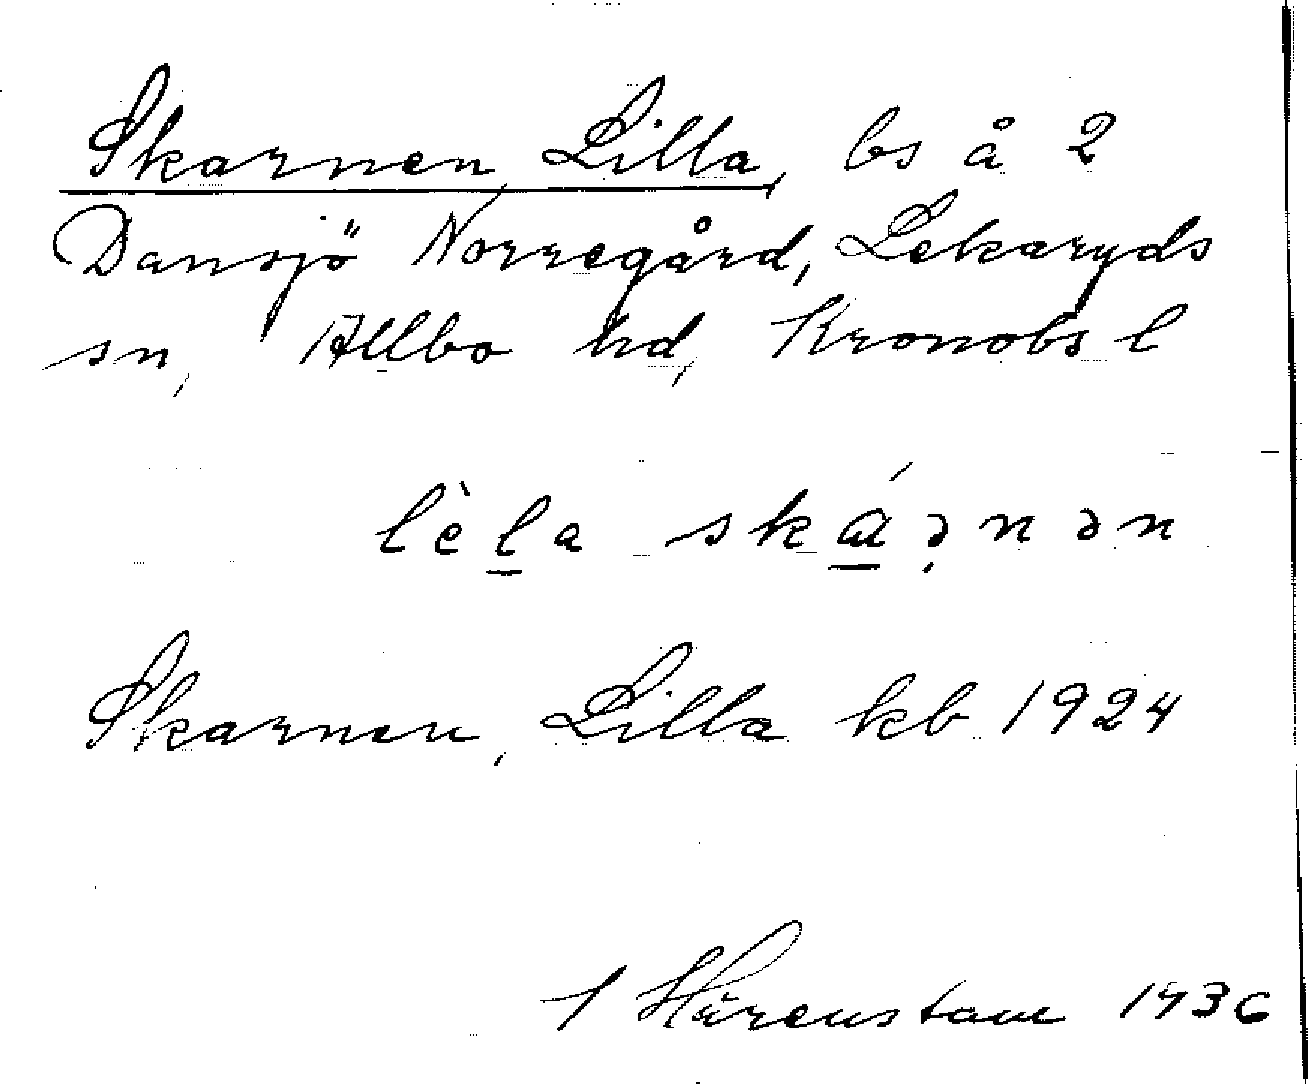 Skarnen, Lilla, bs å 2
Dansjö Norregård, Lekaryds
sn, Allbo hd, Kronobs l
lèla skáənən
Skarnen, Lilla kb 1924
Härenstam 1936